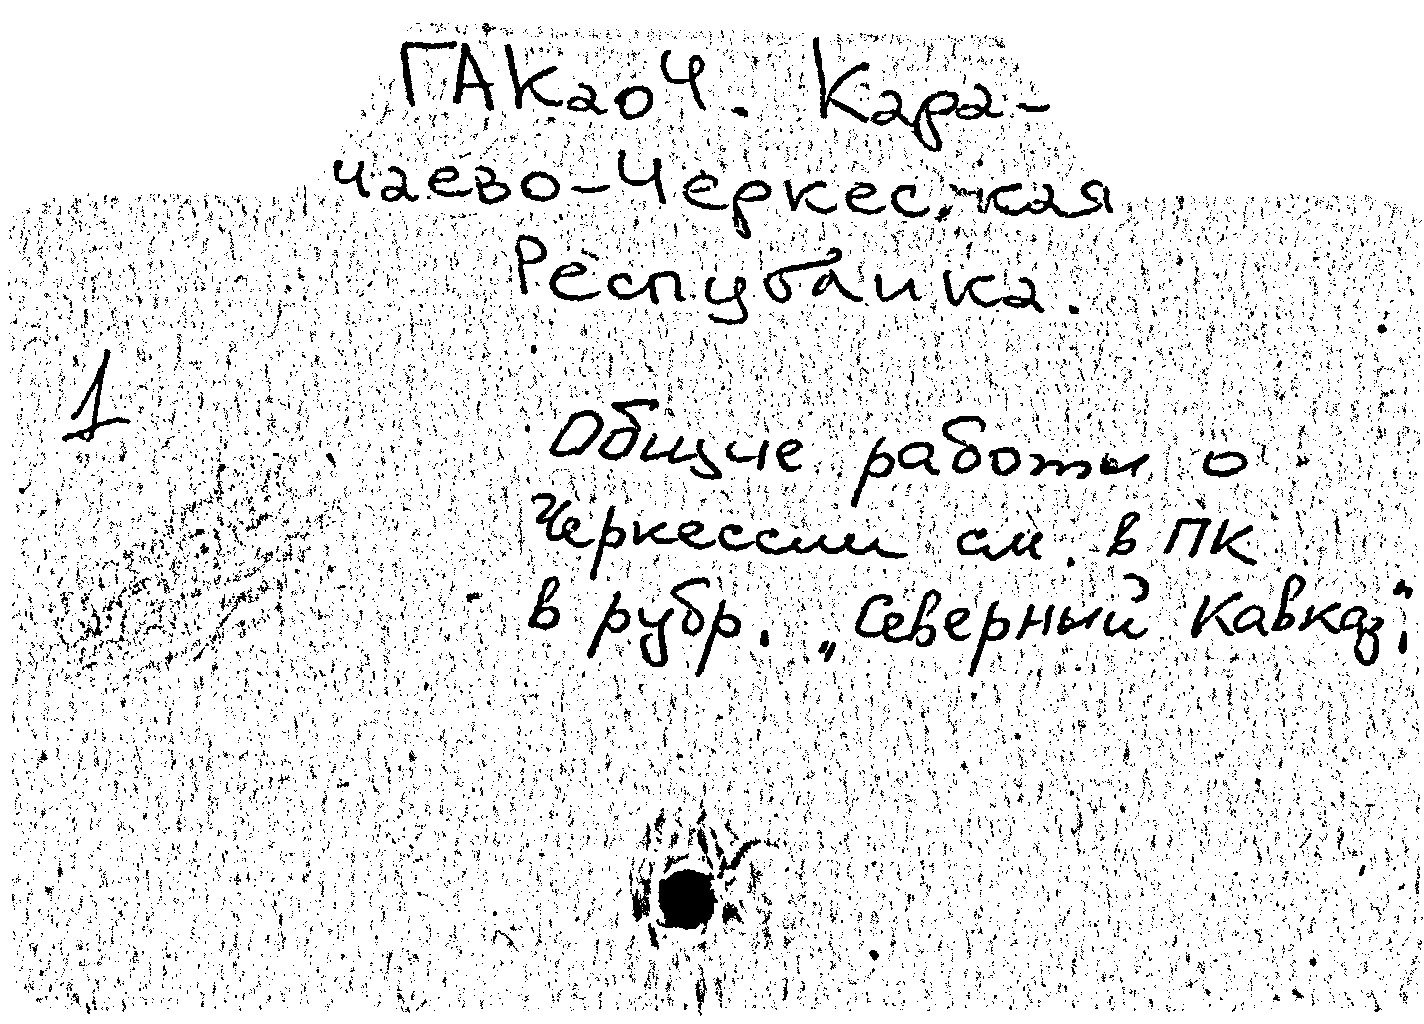 ГАКаоЧ. Кара-
чаево-Черкесская
Республика.
1
Общие работы о
Черкессии см. в ПК
в рубр. „Северный Кавказ".